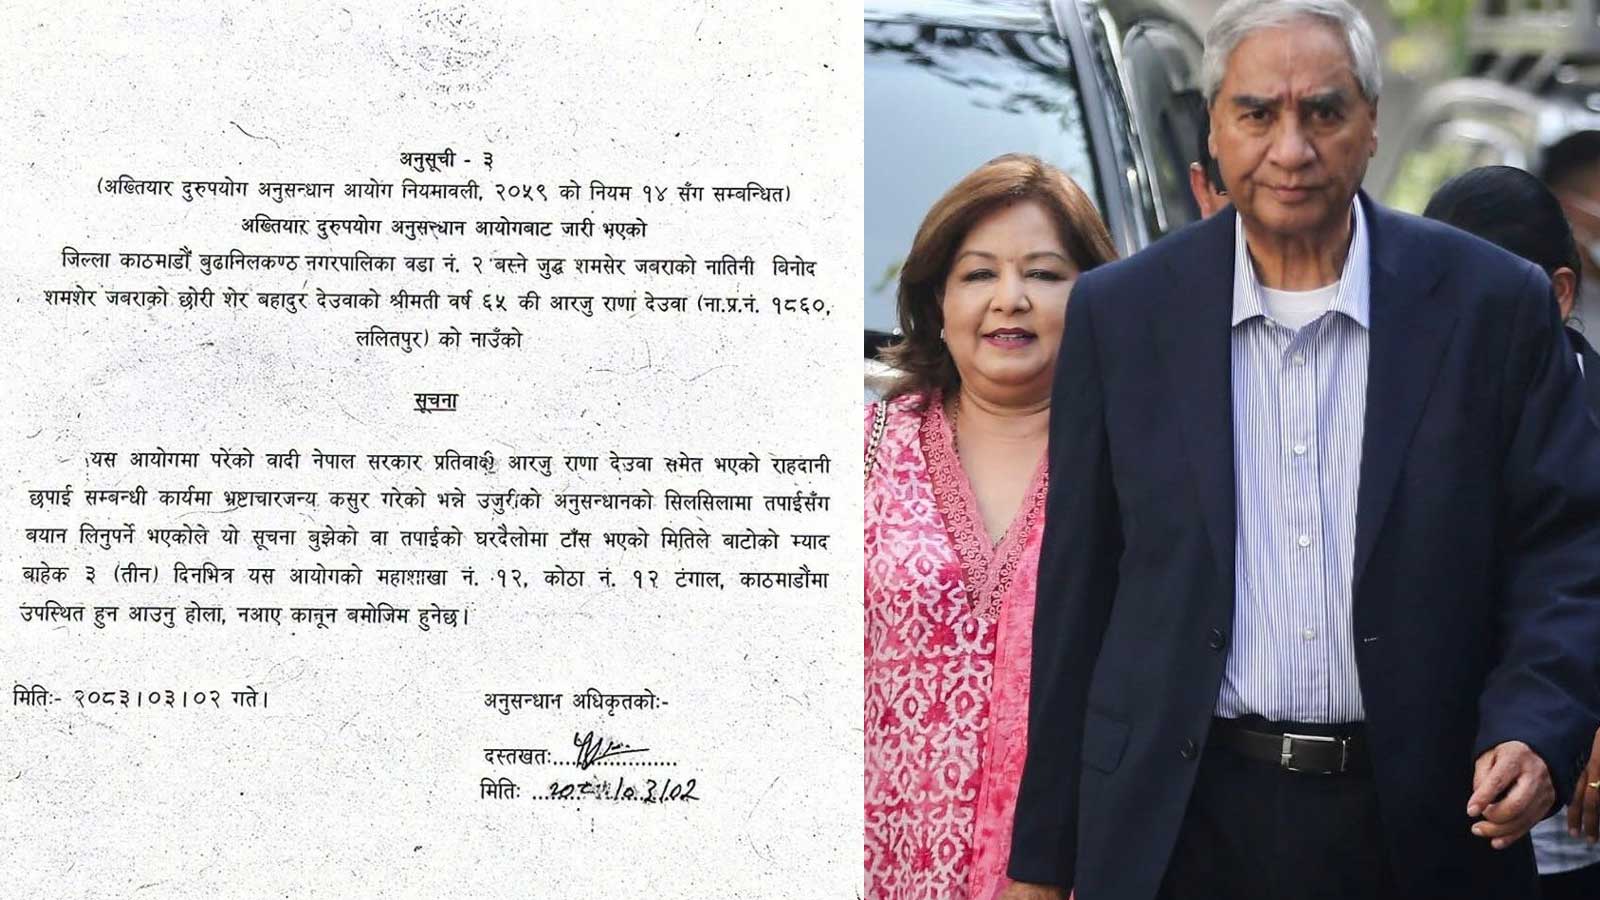 अनुसूची - ३
(अख्तियार दुरुपयोग अनुसन्धान आयोग नियमावली, २०५९ को नियम १४ सँग सम्बन्धित)
अख्तियार दुरुपयोग अनुसन्धान आयोगबाट जारी भएको
जिल्ला काठमाडौं बुढानिलकण्ठ नगरपालिका वडा नं. २ बस्ने जुद्ध शमसेर जबराको नातिनी बिनोद
शमशेर जबराको छोरी शेर बहादुर देउवाको श्रीमती वर्ष ६५ की आरजु राणा देउवा (ना.प्र.नं. १८६०,
ललितपुर) को नाउँको
सूचना
यस आयोगमा परेको वादी नेपाल सरकार प्रतिवादी आरजु राणा देउवा समेत भएको राहदानी
छपाई सम्बन्धी कार्यमा भ्रष्टाचारजन्य कसुर गरेको भन्ने उजुरीको अनुसन्धानको सिलसिलामा तपाईसँग
बयान लिनुपर्ने भएकोले यो सूचना बुझेको वा तपाईको घरदैलोमा टाँस भएको मितिले बाटोको म्याद
बाहेक ३ (तीन) दिनभित्र यस आयोगको महाशाखा नं. १२, कोठा नं. १२ टंगाल, काठमाडौंमा
उपस्थित हुन आउनु होला, नआए कानून बमोजिम हुनेछ।
मितिः- २०८३।०३।०२ गते।
अनुसन्धान अधिकृतकोः-
दस्तखतः
मितिः